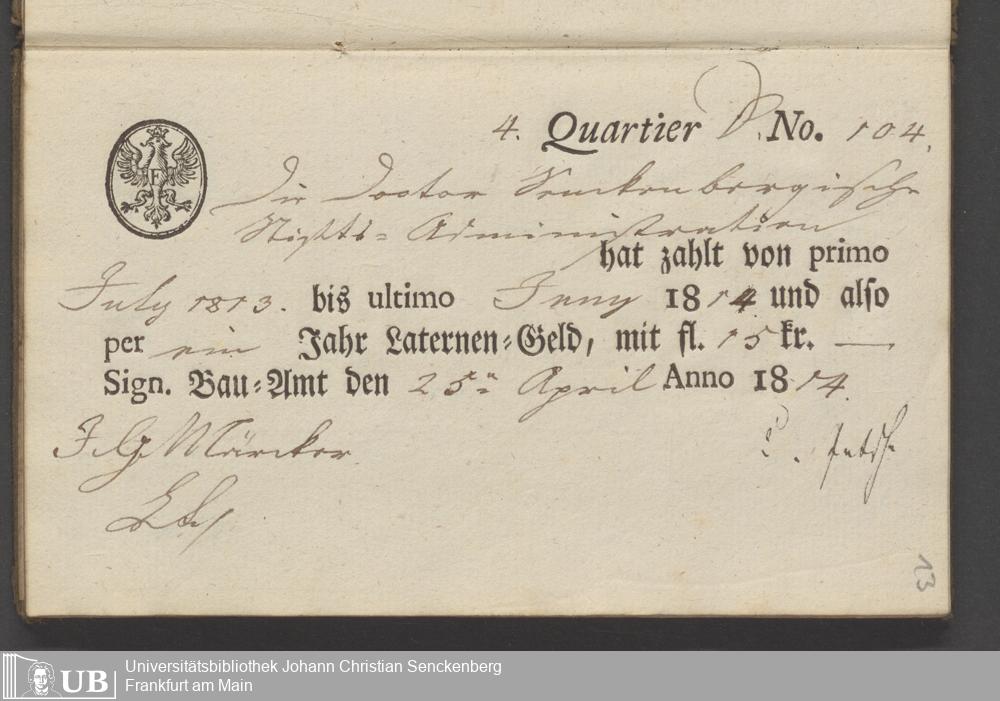 4. Quartier D. No. 104.
Die Doctor Senckenbergische
Stiftts- Administration
hat zahlt von primo
July 1813. bis ultimo Juny 1814 und also
per ein Jahr Laternen-Geld, mit fl. 15 kr. —
Sign. Bau-Amt den 25n April Anno 1814.
J. G. Märcker
13
UB
Universitätsbibliothek Johann Christian Senckenberg
Frankfurt am Main